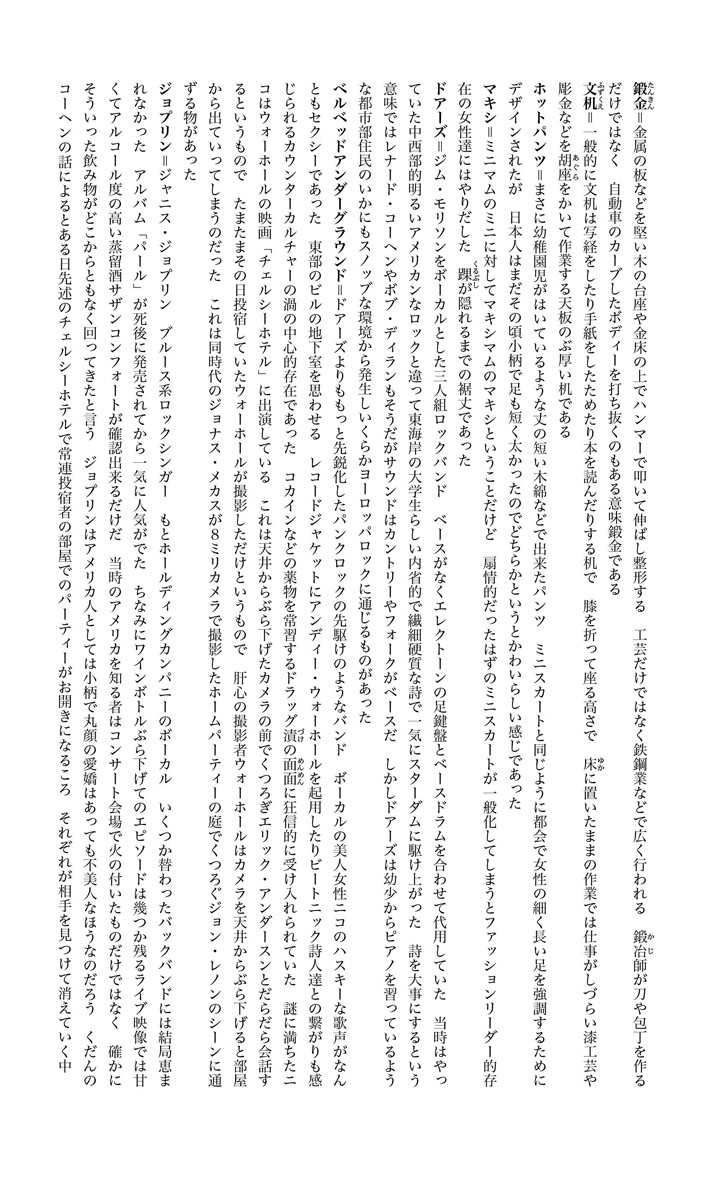 鍛金＝金属の板などを堅い木の台座や金床の上でハンマーで叩いて伸ばし整形する　工芸だけではなく鉄鋼業などで広く行われる　鍛冶師が刀や包丁を作る
だけではなく　自動車のカーブしたボディーを打ち抜くのもある意味鍛金である
文机＝一般的に文机は写経をしたり手紙をしたためたり本を読んだりする机で　膝を折って座る高さで　床に置いたままの作業では仕事がしづらい漆工芸や
彫金などを胡座をかいて作業する天板のぶ厚い机である
ホットパンツ＝まさに幼稚園児がはいているような丈の短い木綿などで出来たパンツ　ミニスカートと同じように都会で女性の細く長い足を強調するために
デザインされたが　日本人はまだその頃小柄で足も短く太かったのでどちらかというとかわいらしい感じであった
マキシ＝ミニマムのミニに対してマキシマムのマキシということだけど　扇情的だったはずのミニスカートが一般化してしまうとファッションリーダー的存
在の女性達にはやりだした　踝が隠れるまでの裾丈であった
ドアーズ＝ジム・モリソンをボーカルとした三人組ロックバンド　ベースがなくエレクトーンの足鍵盤とベースドラムを合わせて代用していた　当時はやっ
ていた中西部的明るいアメリカンなロックと違って東海岸の大学生らしい内省的で繊細硬質な詩で一気にスターダムに駆け上がった　詩を大事にするという
意味ではレナード・コーヘンやボブ・ディランもそうだがサウンドはカントリーやフォークがベースだ　しかしドアーズは幼少からピアノを習っているよう
な都市部住民のいかにもスノッブな環境から発生しいくらかヨーロッパロックに通じるものがあった
ベルベッドアンダーグラウンド＝ドアーズよりももっと先鋭化したパンクロックの先駆けのようなバンド　ボーカルの美人女性ニコのハスキーな歌声がなん
ともセクシーであった　東部のビルの地下室を思わせる　レコードジャケットにアンディー・ウォーホールを起用したりビートニック詩人達との繋がりも感
じられるカウンターカルチャーの渦の中心的存在であった　コカインなどの薬物を常習するドラッグ漬の面面に狂信的に受け入れられていた　謎に満ちたニ
コはウォーホールの映画「チェルシーホテル」に出演している　これは天井からぶら下げたカメラの前でくつろぎエリック・アンダースンとだらだら会話す
るというもので　たまたまその日投宿していたウォーホールが撮影しただけというもので　肝心の撮影者ウォーホールはカメラを天井からぶら下げると部屋
から出ていってしまうのだった　これは同時代のジョナス・メカスが８ミリカメラで撮影したホームパーティーの庭でくつろぐジョン・レノンのシーンに通
ずる物があった
ジョプリン＝ジャニス・ジョプリン　ブルース系ロックシンガー　もとホールディングカンパニーのボーカル　いくつか替わったバックバンドには結局恵ま
れなかった　アルバム「パール」が死後に発売されてから一気に人気がでた　ちなみにワインボトルぶら下げてのエピソードは幾つか残るライブ映像では甘
くてアルコール度の高い蒸留酒サザンコンフォートが確認出来るだけだ　当時のアメリカを知る者はコンサート会場で火の付いたものだけではなく　確かに
そういった飲み物がどこからともなく回ってきたと言う　ジョプリンはアメリカ人としては小柄で丸顔の愛嬌はあっても不美人なほうなのだろう　くだんの
コーヘンの話によるとある日先述のチェルシーホテルで常連投宿者の部屋でのパーティーがお開きになるころ　それぞれが相手を見つけて消えていく中